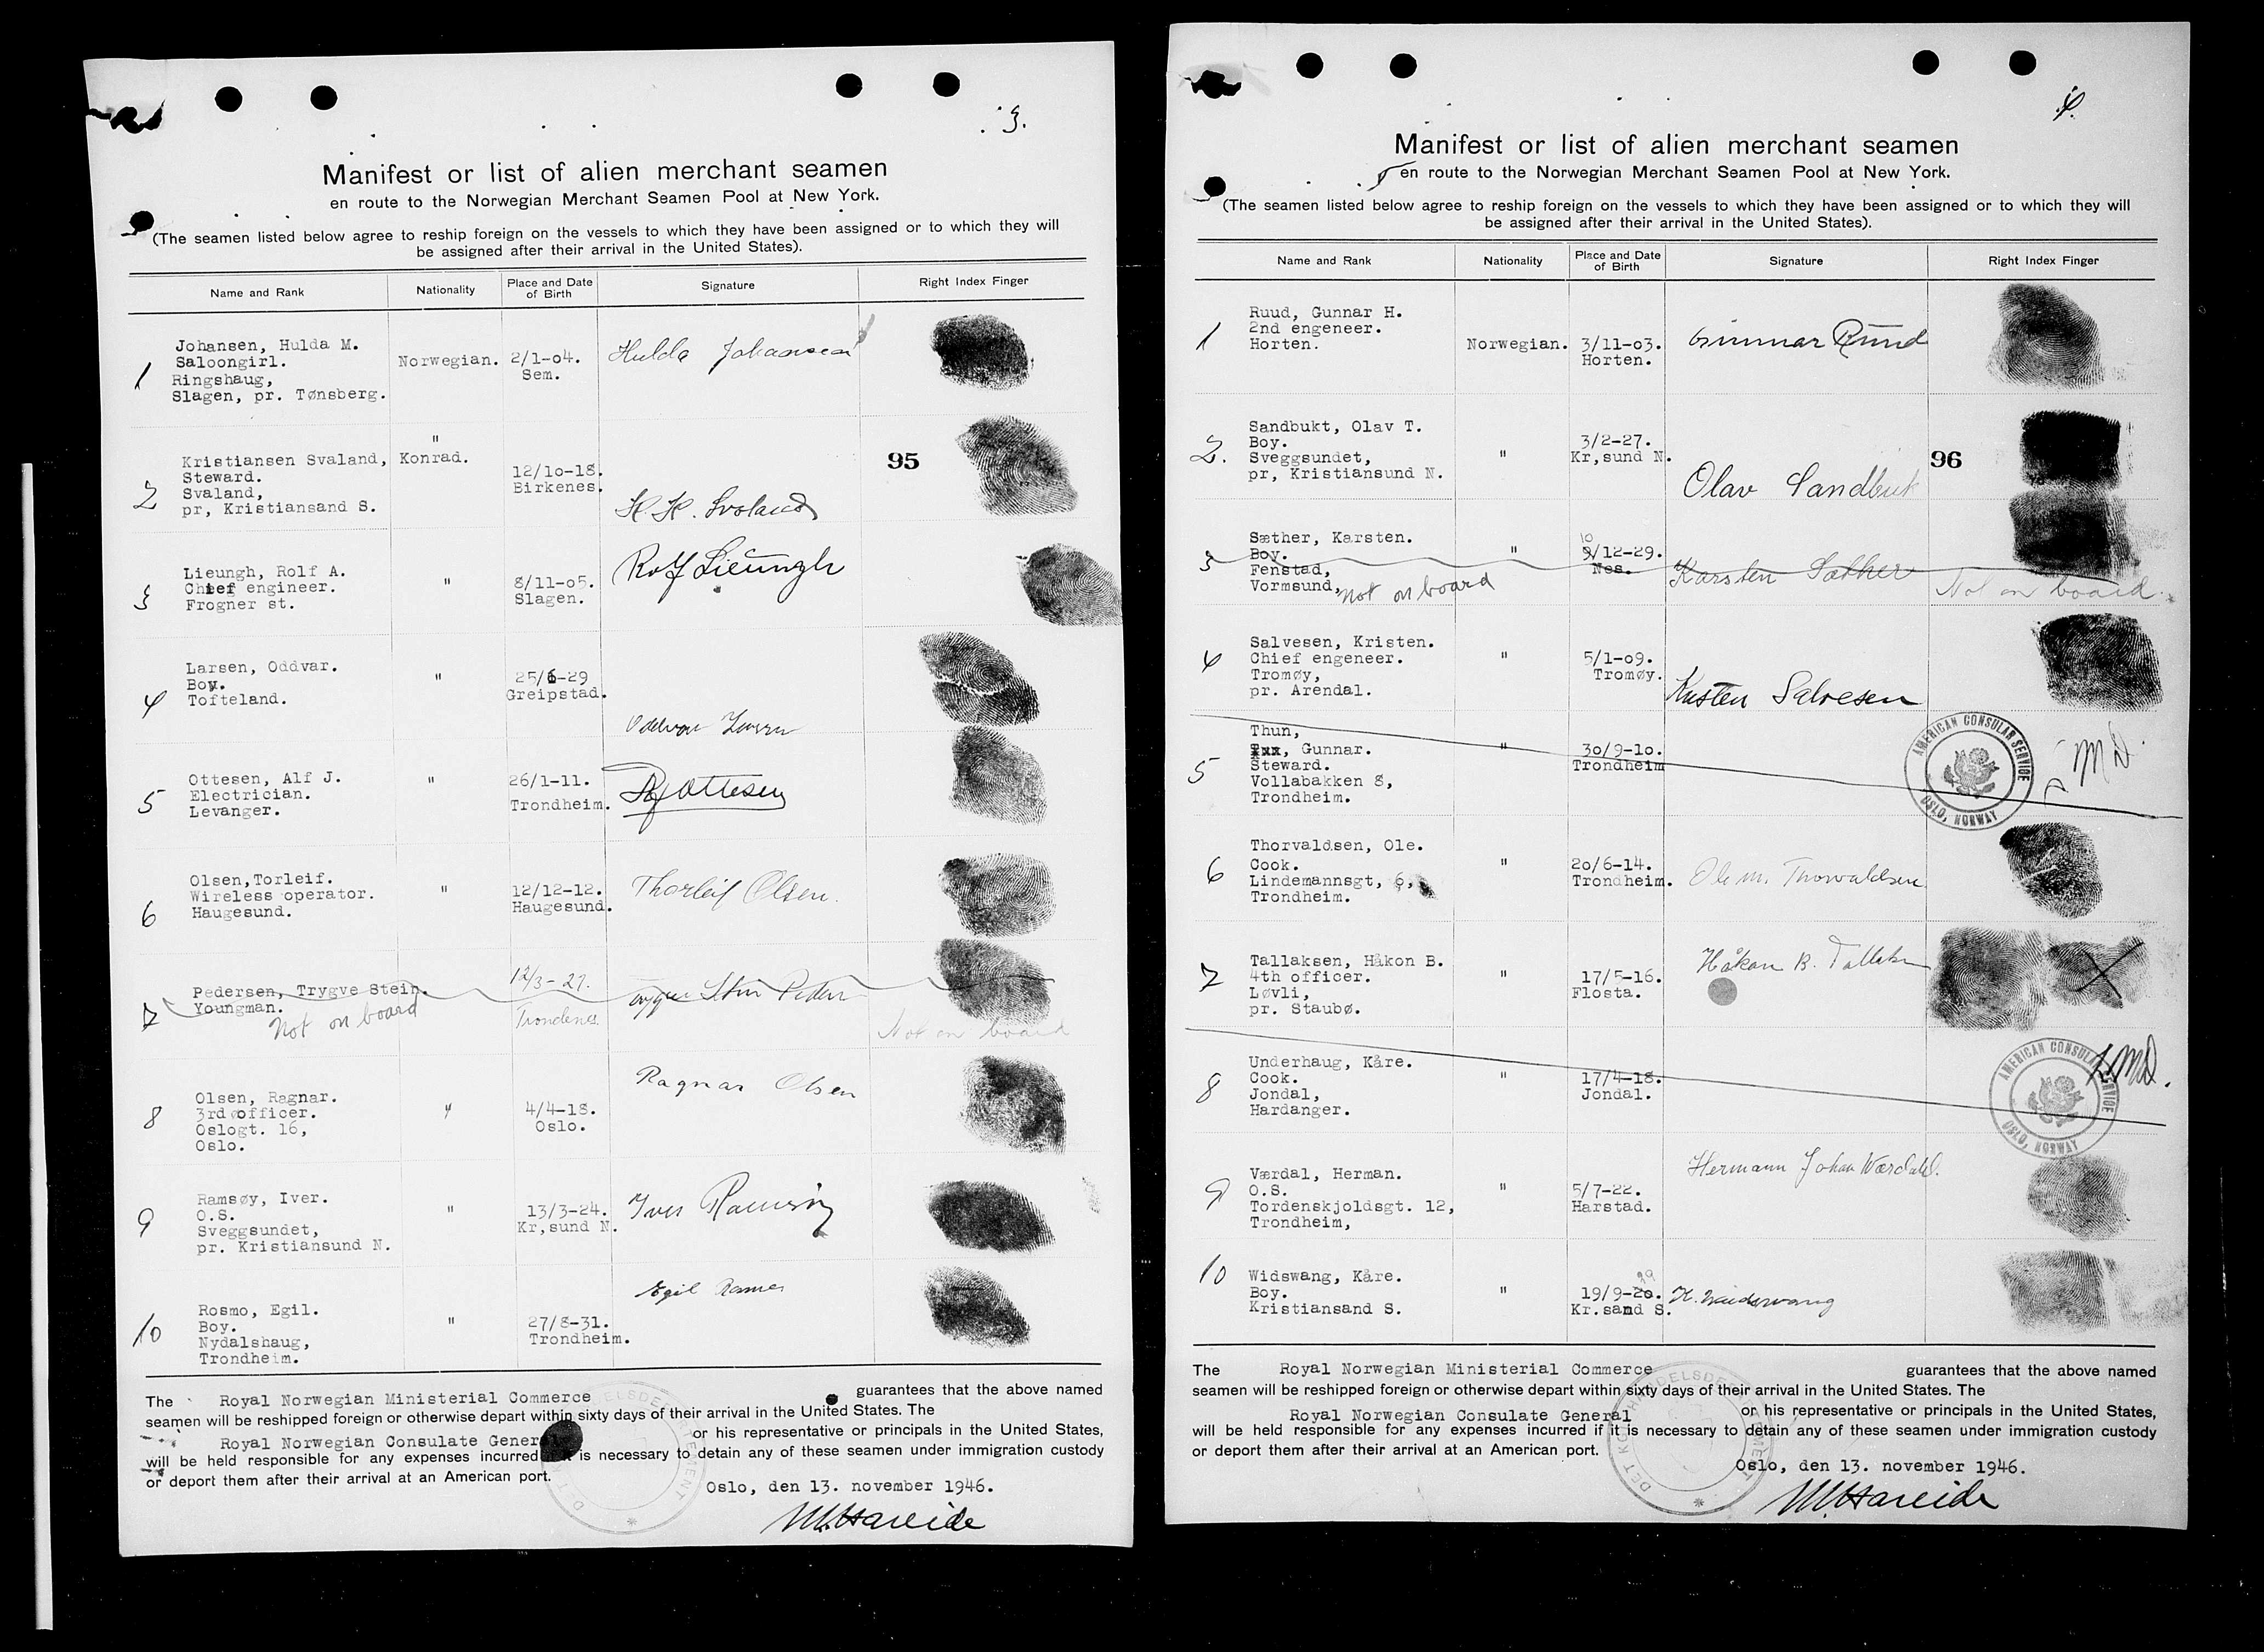 3.
Manifest or list of alien merchant seamen
en route to the Norwegian Merchant Seamen Pool at New York.
(The seamen listed below agree to reship foreign on the vessels to which they have been assigned or to which they will
be assigned after their arrival in the United States).
Name and Rank Nationality Place and Date of Birth Signature Right Index Finger
1 Johansen, Hulda M. Norwegian. 2/1-04. Hulda Johansen
Saloongirl. Sem.
Ringshaug,
Slagen, pr. Tønsberg.
"
2 Kristiansen Svaland, Konrad. 12/10-18. K. K. Svaland 95
Steward. Birkenes.
Svaland,
pr, Kristiansand S.
3 Lieungh, Rolf A. " 8/11-05. Rolf Lieungh
Chief engineer. Slagen.
Frogner st.
4 Larsen, Oddvar. " 25/6-29 Oddvar Larsen
Boy. Greipstad.
Tofteland.
5 Ottesen, Alf J. " 26/1-11. Ottesen
Electrician. Trondheim.
Levanger.
6 Olsen,Torleif. " 12/12-12. Thorleif Olsen.
Wireless operator. Haugesund.
Haugesund.
7 Pedersen, Trygve Stein. 12/3-27. Trygve Stein Peder
Youngman. Trondenes.
Not on board Not on board
8 Olsen, Ragnar. " 4/4-18. Ragnar Olsen
3rd officer. Oslo.
Oslogt. 16,
Oslo.
9 Ramsøy, Iver. " 13/3-24. Iver Ramsöy
O.S. Kr,sund N.
Sveggsundet,
pr. Kristiansund N.
10 Rosmo, Egil. " 27/8-31. Egil
Boy. Trondheim.
Nydalshaug,
Trondheim.
The Royal Norwegian Ministerial Commerce guarantees that the above named
seamen will be reshipped foreign or otherwise depart within sixty days of their arrival in the United States. The
Royal Norwegian Consulate Gener or his representative or principals in the United States,
will be held responsible for any expenses incurred it is necessary to detain any of these seamen under immigration custody
or deport them after their arrival at an American port.
Oslo, den 13. november 1946.
Hareide
4.
Manifest or list of alien merchant seamen
en route to the Norwegian Merchant Seamen Pool at New York.
(The seamen listed below agree to reship foreign on the vessels to which they have been assigned or to which they will
be assigned after their arrival in the United States).
Name and Rank Nationality Place and Date of Birth Signature Right Index Finger
1 Ruud, Gunnar H. Norwegian. 3/11-03. Gunnar Ruud
2nd engeneer. Horten.
Horten.
2. Sandbukt, Olav T. " 3/2-27. Olav Sandbukt 96
Boy. Kr,sund N.
Sveggsundet,
pr, Kristiansund N.
3 Sæther, Karsten. " 10 9/12-29. Karsten Sæther
Boy. Nes.
Fenstad,
Vormsund, Not on board Not on board.
4 Salvesen, Kristen. " 5/1-09. Kristen Salvesen
Chief engeneer. Tromøy.
Tromøy,
pr. Arendal.
5 Thun,
Txx, Gunnar. " 30/9-10.
Steward. Trondheim
Vollabakken 8,
Trondheim.
AMERICAN CONSULAR SERVICE OSLO, NORWAY
6 Thorvaldsen, Ole. " 20/6-14. Ole M. Thorvaldsen.
Cook. Trondheim.
Lindemannsgt, 6,
Trondheim.
7 Tallaksen, Håkon B. " 17/5-16. Håkon B. Tallaksen
4th officer. Flosta.
Løvli,
pr. Staubø.
8 Underhaug, Kåre. " 17/4-18.
Cook. Jondal.
Jondal,
Hardanger.
AMERICAN CONSULAR SERVICE OSLO, NORWAY
9 Værdal, Herman. " 5/7-22. Hermann Johan Værdahl.
O.S. Harstad.
Tordenskjoldsgt. 12,
Trondheim,
10 Widswang, Kåre. " 19/9-20. 29 K. Widswang
Boy. Kr.sand S.
Kristiansand S.
The Royal Norwegian Ministerial Commerce guarantees that the above named
seamen will be reshipped foreign or otherwise depart within sixty days of their arrival in the United States. The
Royal Norwegian Consulate General or his representative or principals in the United States,
will be held responsible for any expenses incurred if it is necessary to detain any of these seamen under immigration custody
or deport them after their arrival at an American port.
Oslo, den 13. november 1946.
Hareide